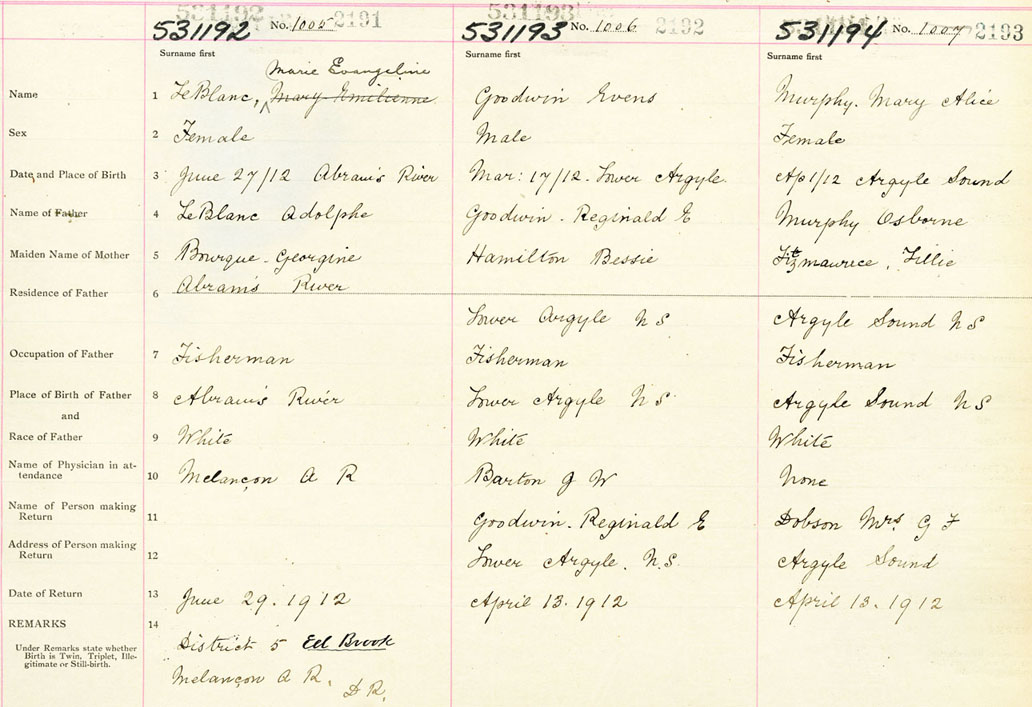 531192 No. 1005 2191 531193 No. 1006 2192 531194 No. 1007 2193
Surname first Surname first Surname first
Marie Evangeline
Name 1 LeBlanc, Mary Emilienne Goodwin Evens Murphy. Mary Alice
Sex 2 Female Male Female
Date and Place of Birth 3 June 27/12 Abram's River Mar: 17/12. Lower Argyle Ap 1/12 Argyle Sound
Name of Father 4 LeBlanc Adolphe Goodwin - Reginald E Murphy Osborne
Maiden Name of Mother 5 Bourque - Georgine Hamilton Bessie Fitzmaurice, Tillie
Residence of Father 6 Abram's River
Lower Argyle N S Argyle Sound N S
Occupation of Father 7 Fisherman Fisherman Fisherman
Place of Birth of Father 8 Abram's River Lower Argyle N S Argyle Sound N S
and
Race of Father 9 White White White
Name of Physician in at-
tendance 10 Melançon A R Barton G W None
Name of Person making
Return 11 Goodwin - Reginald E Dobson Mrs G F
Address of Person making
Return 12 Lower Argyle. N.S. Argyle Sound
Date of Return 13 June 29. 1912 April 13. 1912 April 13. 1912
REMARKS 14
Under Remarks state whether
Birth is Twin, Triplet, Ille-
gitimate or Still-birth.
District 5 Eel Brook
Melançon A R. D R.